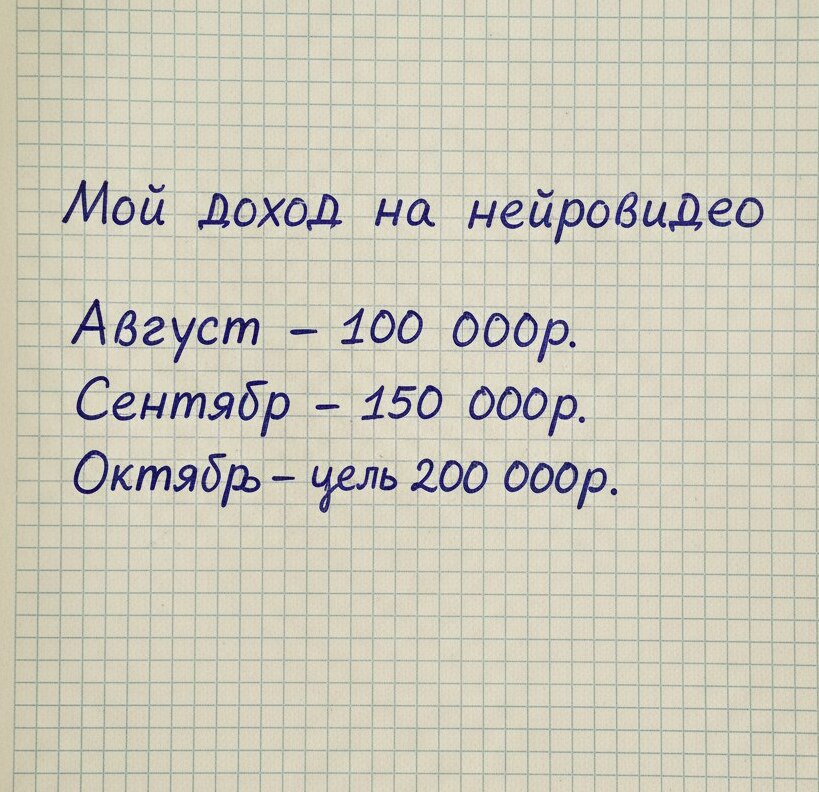 Мой доход на нейровидео
Август - 100 000р.
Сентябр - 150 000р.
Октябрь - цель 200 000р.